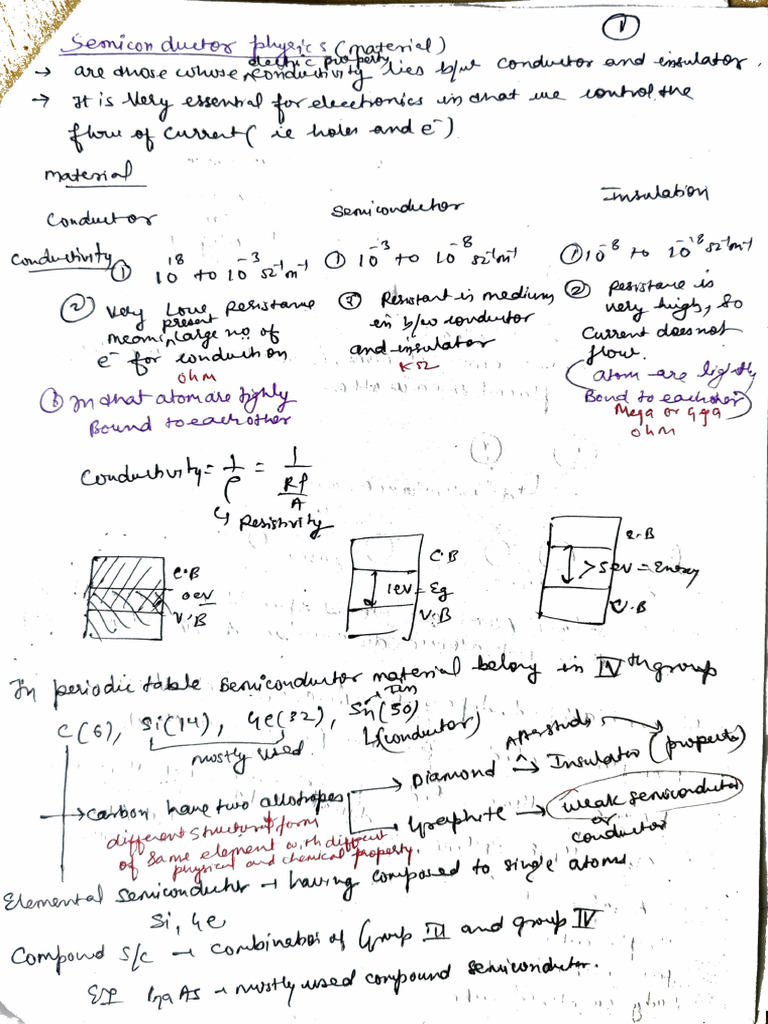 ①
Semiconductor physics (material)
→ are those whose electric property conductivity lies b/w conductor and insulator.
→ It is very essential for electronics in that we control the
flow of current ( ie holes and e⁻)
material
Conductor
Semiconductor
Insulation
Conductivity
① 10¹⁸ to 10⁻³ Ω⁻¹m⁻¹
① 10⁻³ to 10⁻⁸ Ω⁻¹m⁻¹
① 10⁻⁸ to 10⁻¹⁸ Ω⁻¹m⁻¹
② Very Low resistance
present
large no. of
e⁻ for conduction
ohm
③ In that atom are tighly
Bound to each other
② Resistant is medium
in b/w conductor
and insulator
KΩ
② resistane is
very high, so
Current does not
flow.
(atom are lightly
Bond to each other)
Mega or Giga
ohm
Conductivity = 1/ρ = 1/(Rρ/A)
↳ Resistivity
C.B
0ev
V.B
C.B
1ev = Eg
V.B
C.B
>5ev = Energy
V.B
In periodic table Semiconductor material belong in IVth group
C(6), Si(14), Ge(32), Sn(50)
→ Tin
mostly used
↳(conductor)
→ carbon have two allotropes
→ Diamond → Insulator (property)
→ Graphite → weak semiconductor
or
conductor
different structural form
of same element with different
physical and chemical property.
Elemental semiconductor → having composed to single atoms
Si, Ge
Compound S/C → combination of Group III and group IV
EX GaAs → mostly used compound semiconductor.